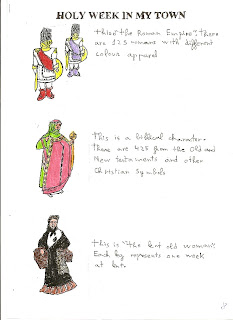 HOLY WEEK IN MY TOWN
this is the Roman Empire". there
are 125 romans with different
colour apparel
this is a biblical character.
there are 425 from the Old and
New testaments and other
Christian symbols
this is "the lent old woman".
Each leg represents one week
at lent.